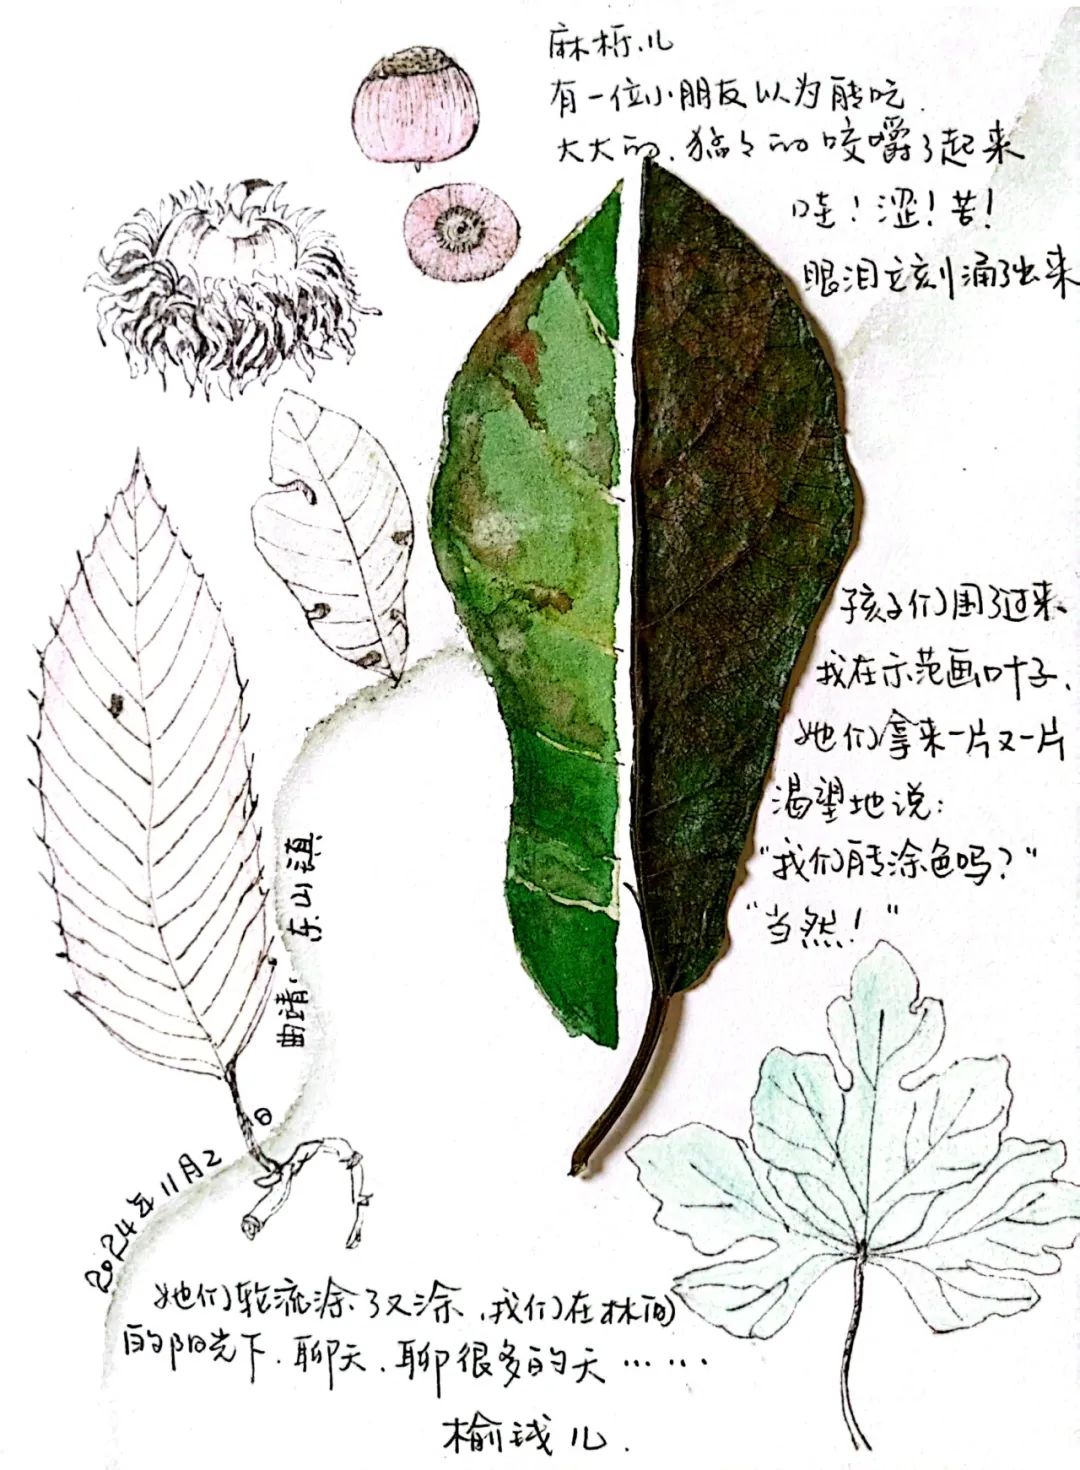 麻栎儿
有一位小朋友以为能吃.
大大的、猛々的咬嚼了起来
哇！涩！苦！
眼泪立刻涌了出来
孩子们围了过来、
我在示范画叶子,
她们拿来一片又一片
渴望地说：
"我们能涂色吗？"
"当然！"
曲靖·东山镇
2024年11月2日
她们轮流涂了又涂,我们在林间
的阳光下.聊天.聊很多的天……
榆钱儿.